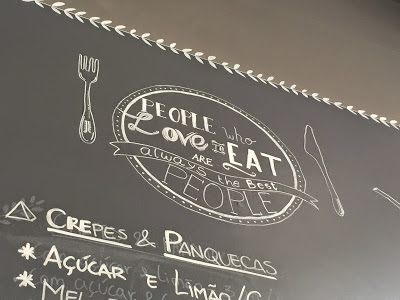 PEOPLE who
Love to EAT
ARE
always the Best
PEOPLE
CREPES & PANQUECAS
* AÇÚCAR E LIMÃO/
* MEL